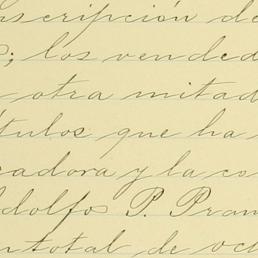 nscripción de
s; los vended
otra mitad
ítulos que ha
cadora y la co
dolfo P. Pran
ntotal de oc